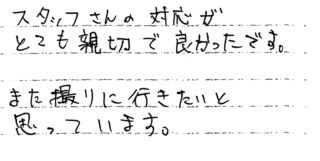 スタッフさんの対応が
とても親切で良かったです。
また撮りに行きたいと
思っています。